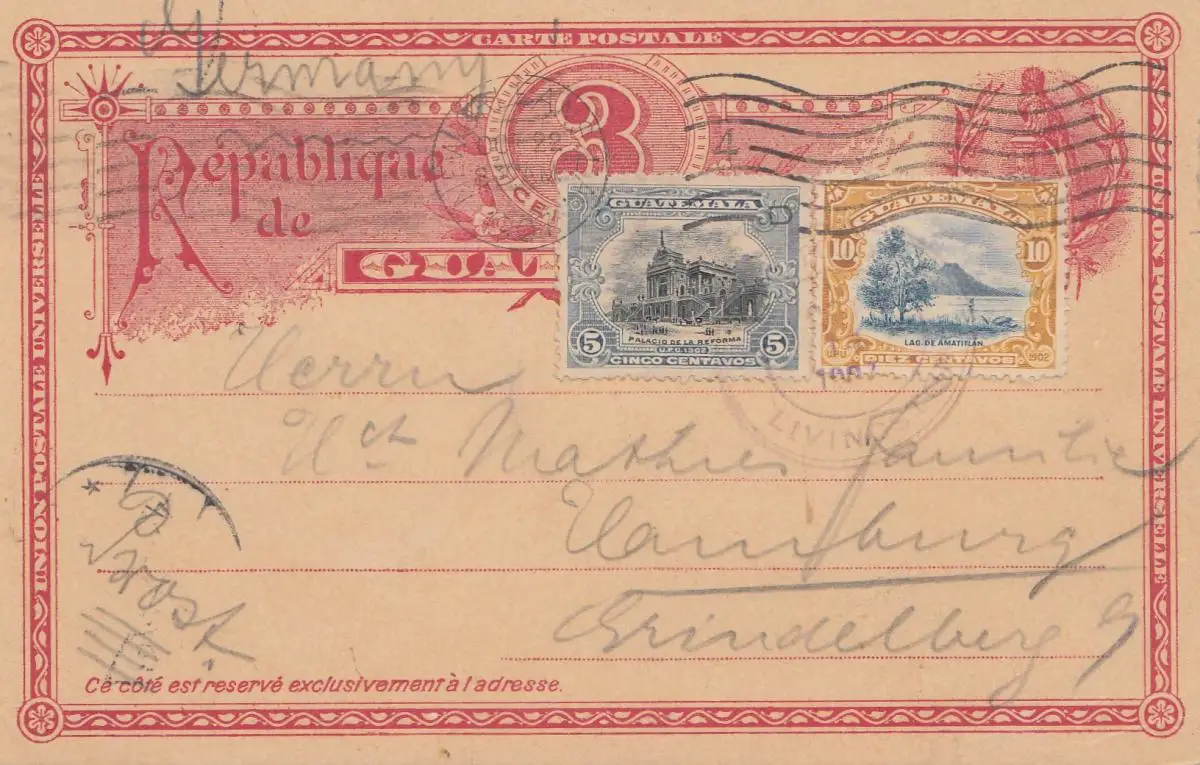 CARTE POSTALE
Germany
République
3
de
GUA
UNION POSTALE UNIVERSELLE
UNION POSTALE UNIVERSELLE
GUATEMALA
PALACIO DE LA REFORMA
U.P.U. 1902
5 CINCO CENTAVOS 5
GUATEMALA
10 10
LAG. DE AMATITLAN
U.P.U. DIEZ CENTAVOS 1902
LIVIN
Herrn
Familie
Hamburg
Grindelberg 9
Ce côté est reservé exclusivement à l adresse.